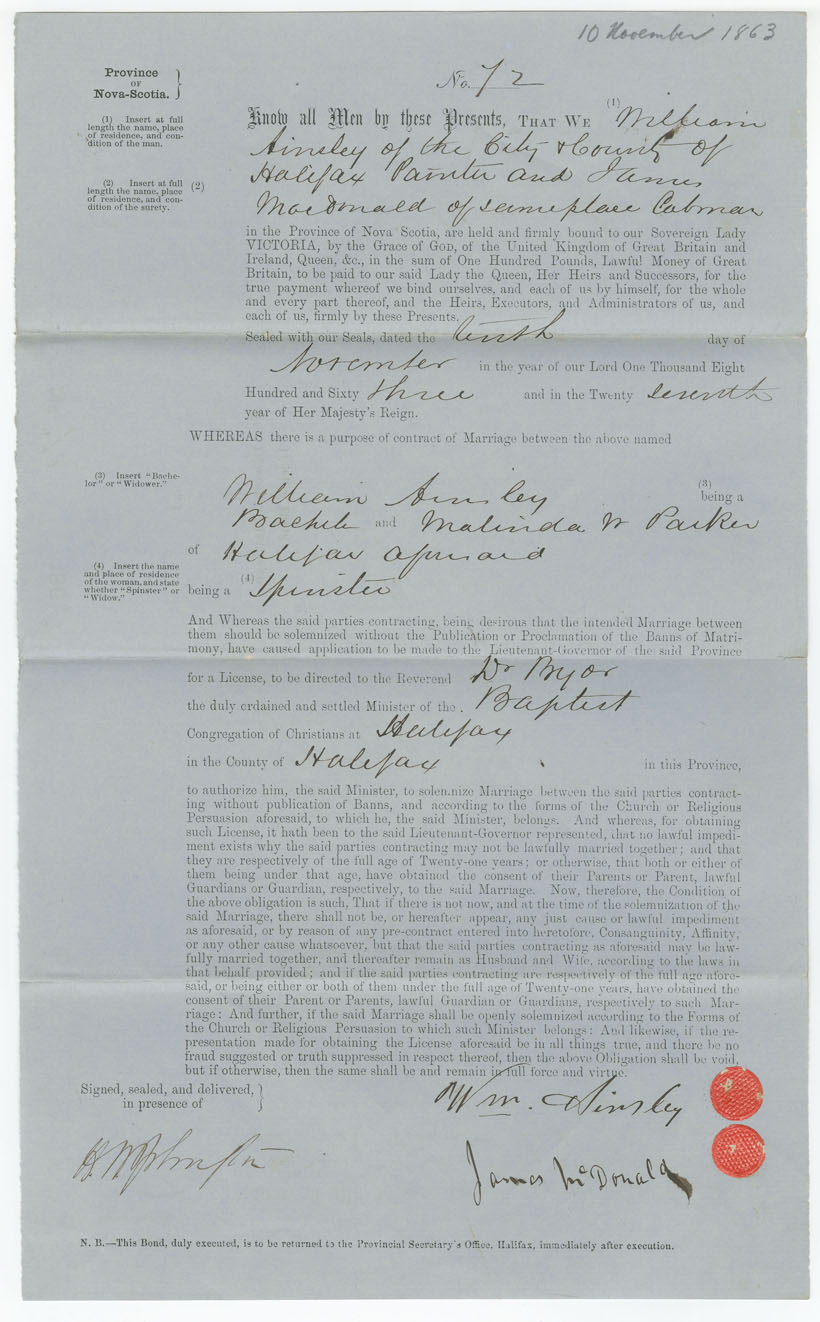 10 November 1863
Province
OF
Nova-Scotia.
No. 72
(1) Insert at full
length the name, place
of residence, and con-
dition of the man.
(2) Insert at full
length the name, place
of residence, and con-
dition of the surety.
Know all Men by these Presents, THAT WE (1) William
Ainsley of the City & County of
(2) Halifax Painter and James
MacDonald of same place Cabman
in the Province of Nova Scotia, are held and firmly bound to our Sovereign Lady
VICTORIA, by the Grace of GOD, of the United Kingdom of Great Britain and
Ireland, Queen, &c., in the sum of One Hundred Pounds, Lawful Money of Great
Britain, to be paid to our said Lady the Queen, Her Heirs and Successors, for the
true payment whereof we bind ourselves, and each of us by himself, for the whole
and every part thereof, and the Heirs, Executors, and Administrators of us, and
each of us, firmly by these Presents.
Sealed with our Seals, dated the tenth day of
November in the year of our Lord One Thousand Eight
Hundred and Sixty three and in the Twenty seventh
year of Her Majesty's Reign.
WHEREAS there is a purpose of contract of Marriage between the above named
(3) Insert "Bache-
lor" or "Widower."
William Ainsley (3) being a
Bachelor and Malinda W Parker
of Halifax aforesaid
(4) Insert the name
and place of residence
of the woman, and state
whether "Spinster" or
"Widow."
being a (4) Spinster
And Whereas the said parties contracting, being desirous that the intended Marriage between
them should be solemnized without the Publication or Proclamation of the Banns of Matri-
mony, have caused application to be made to the Lieutenant-Governor of the said Province
for a License, to be directed to the Reverend Dr Pryor
the duly ordained and settled Minister of the Baptist
Congregation of Christians at Halifax
in the County of Halifax in this Province,
to authorize him, the said Minister, to solemnize Marriage between the said parties contract-
ing without publication of Banns, and according to the forms of the Church or Religious
Persuasion aforesaid, to which he, the said Minister, belongs. And whereas, for obtaining
such License, it hath been to the said Lieutenant-Governor represented, that no lawful impedi-
ment exists why the said parties contracting may not be lawfully married together; and that
they are respectively of the full age of Twenty-one years; or otherwise, that both or either of
them being under that age, have obtained the consent of their Parents or Parent, lawful
Guardians or Guardian, respectively, to the said Marriage. Now, therefore, the Condition of
the above obligation is such, That if there is not now, and at the time of the solemnization of the
said Marriage, there shall not be, or hereafter appear, any just cause or lawful impediment
as aforesaid, or by reason of any pre-contract entered into heretofore, Consanguinity, Affinity,
or any other cause whatsoever, but that the said parties contracting as aforesaid may be law-
fully married together, and thereafter remain as Husband and Wife, according to the laws in
that behalf provided; and if the said parties contracting are respectively of the full age afore-
said, or being either or both of them under the full age of Twenty-one years, have obtained the
consent of their Parent or Parents, lawful Guardian or Guardians, respectively to such Mar-
riage: And further, if the said Marriage shall be openly solemnized according to the Forms of
the Church or Religious Persuasion to which such Minister belongs: And likewise, if the re-
presentation made for obtaining the License aforesaid be in all things true, and there be no
fraud suggested or truth suppressed in respect thereof, then the above Obligation shall be void,
but if otherwise, then the same shall be and remain in full force and virtue.
Signed, sealed, and delivered,
in presence of
Wm. Ainsley
James McDonald
N. B.—This Bond, duly executed, is to be returned to the Provincial Secretary's Office, Halifax, immediately after execution.